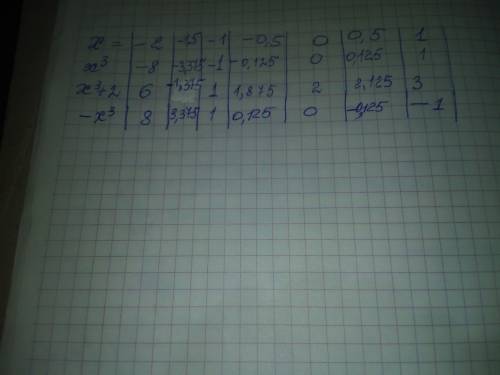 x = | -2 | -1,5 | -1 | -0,5 | 0 | 0,5 | 1
x³ | -8 | -3,375 | -1 | -0,125 | 0 | 0,125 | 1
x³+2 | 6 | -1,375 | 1 | 1,875 | 2 | 2,125 | 3
-x³ | 8 | 3,375 | 1 | 0,125 | 0 | -0,125 | -1